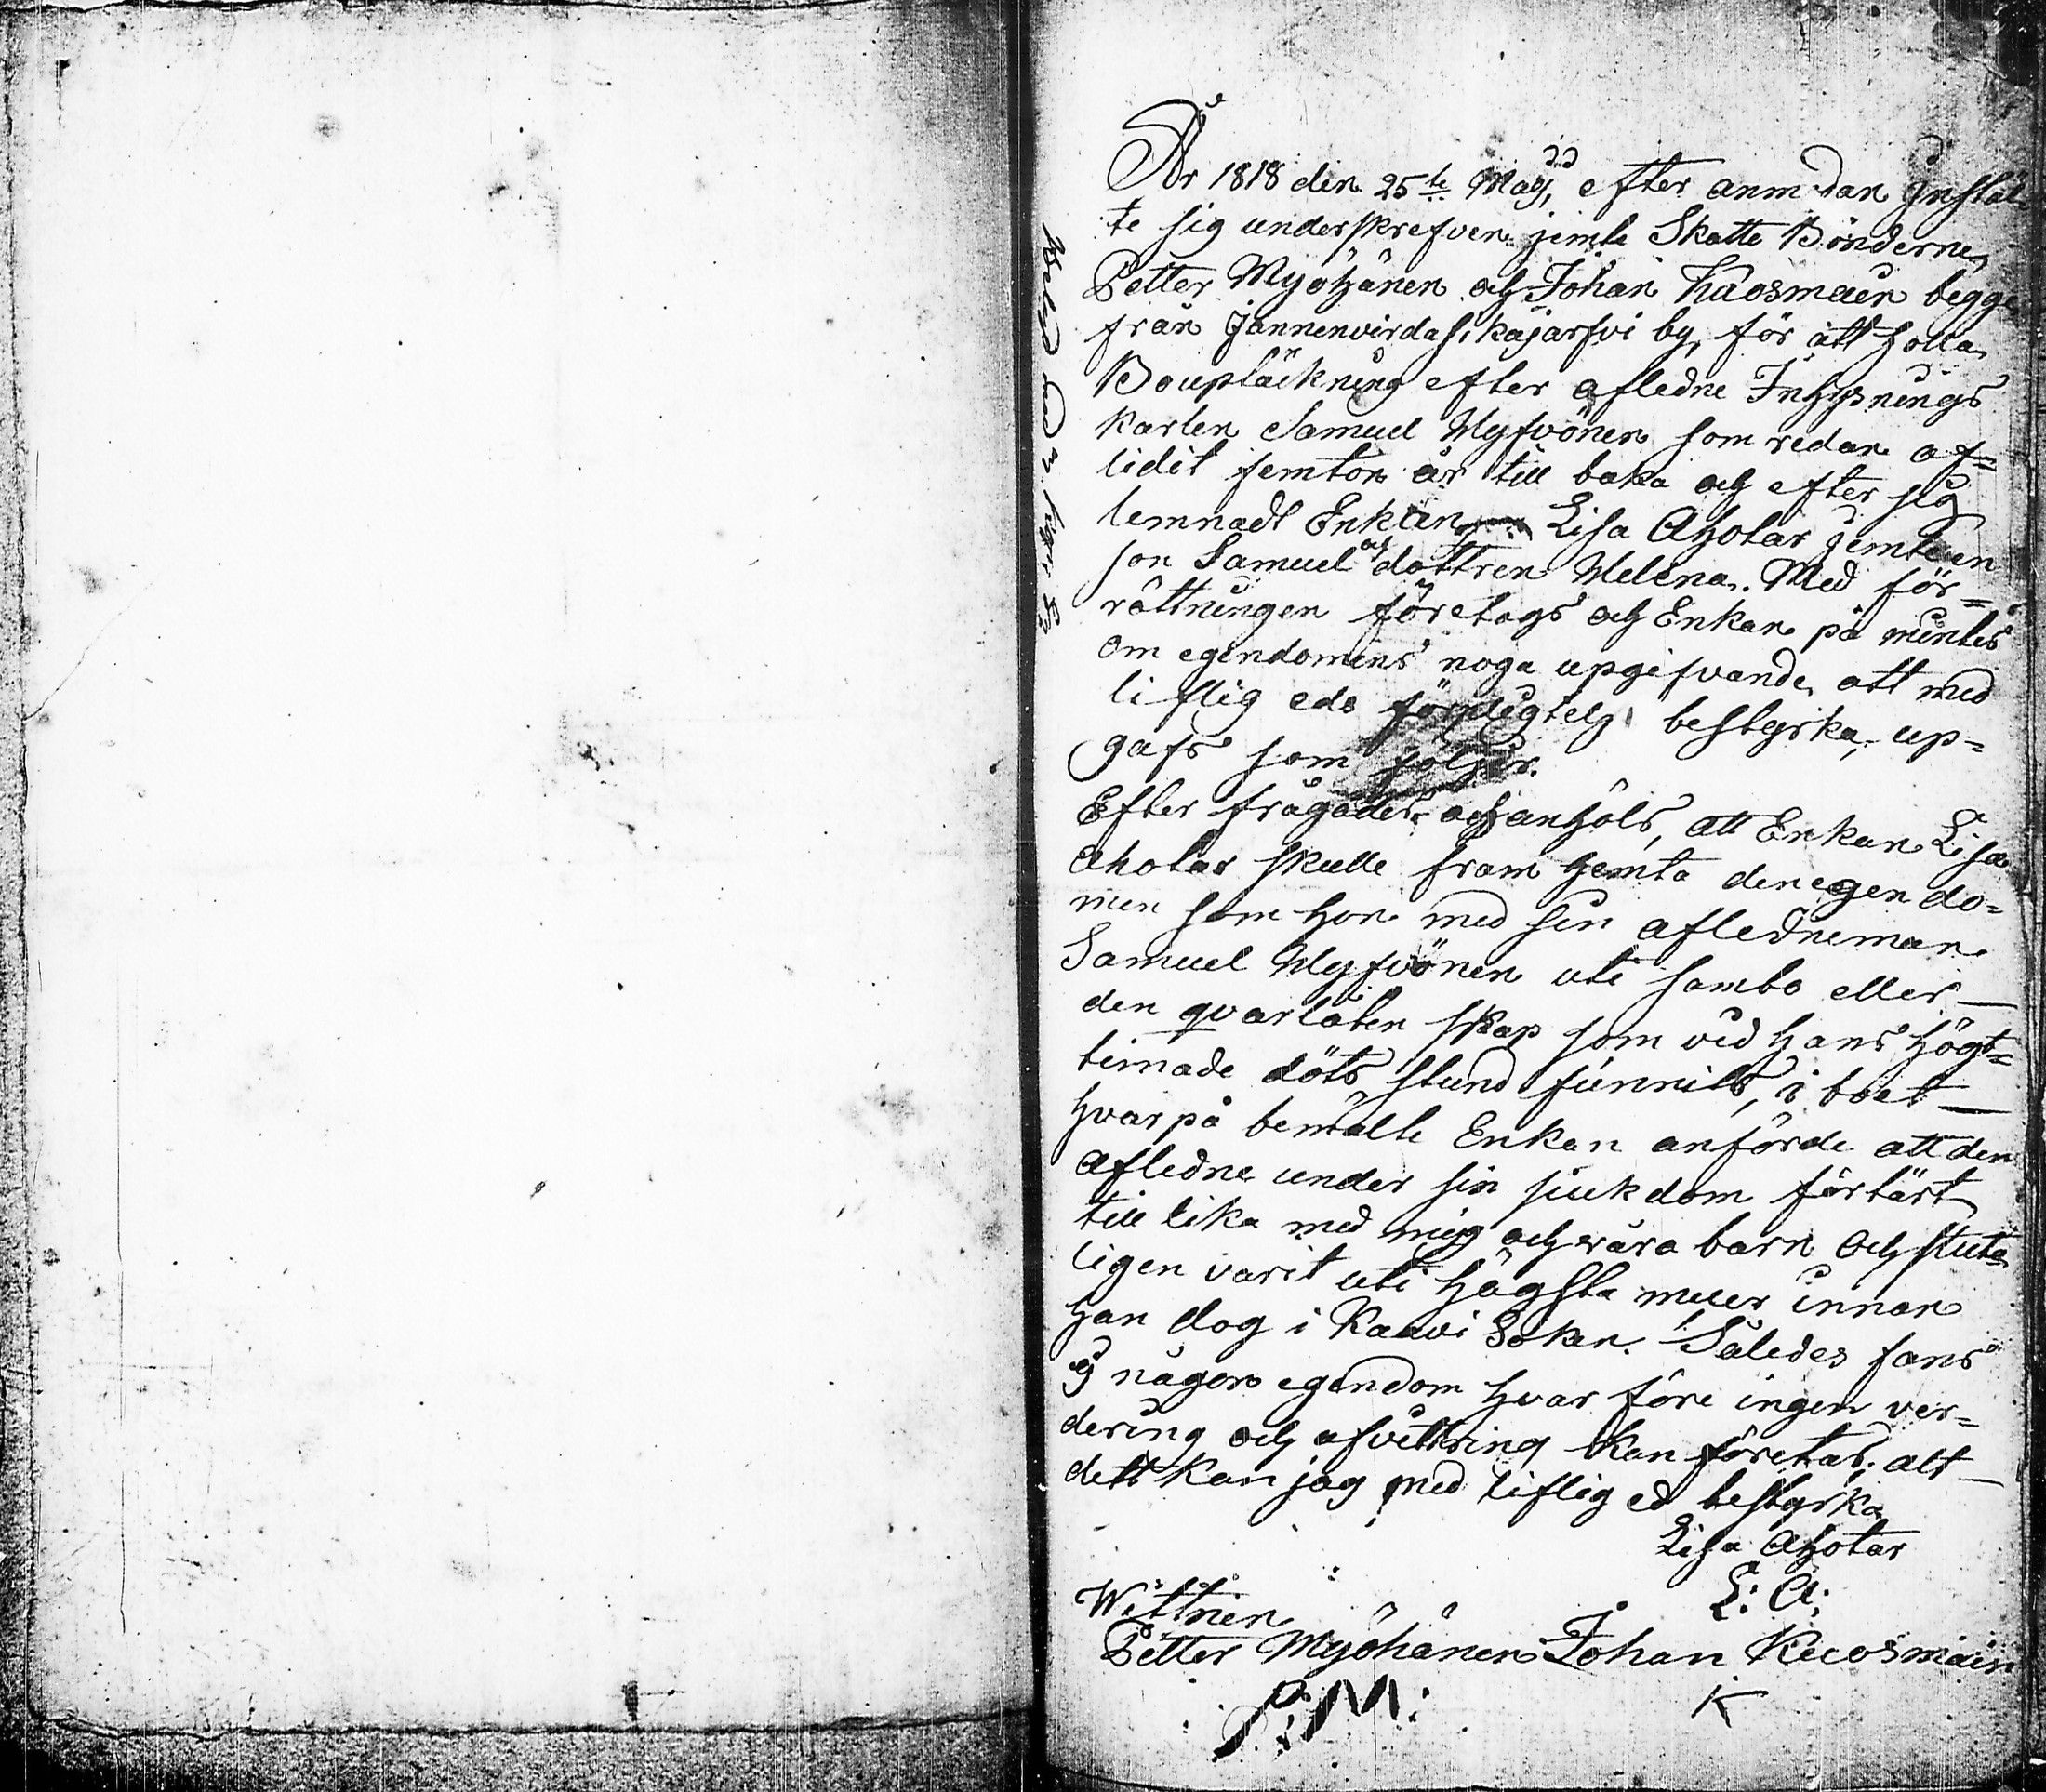 År 1818 den 25te Maij, efter anmodan Instäl
te sig underskrefven jemte Skatte Bönderne
Petter Myöhänen och Johan Kuosmain begge
från Jännenvirda by, för att holla
Boupläckning efter afledne Inhysnings
karlen Samuel Myfvönen som redan af=
lidit femton år till baka och efter sig
lemnadt Enkan Lisa Ahotar jemte en
son Samuel och dottren Helena. Med för=
rättningen företogs och Enkan på mintes
om egendomens noga upgifvande att med
liflig ede bestyrka, up=
gafs som följer.
Efter frågades och anhöls, att Enkan Lisa
Ahotar skulle fram hemta den egen do=
men som hon med sin afledne man
Samuel Myfvönen uti sambo eller
den qvarlåten skap som vid hans högt=
timade döts stund funnits, i boet
hvar på bemälte Enkan anförde att den
afledne under sin siuk dom förtärt
till lika med mig och våra barn och slute
ligen varit uti högsta innan
han dog i Kaavi Sokn. Således fans
ej någon egendom hvar före ingen ver=
dering och afvittring kan företas, att
dett kan jag med liflig ed bestyrka
Lisa Ahotar
L: A:
Wittnen
Petter Myöhänen Johan Kuosmain
P: M: K